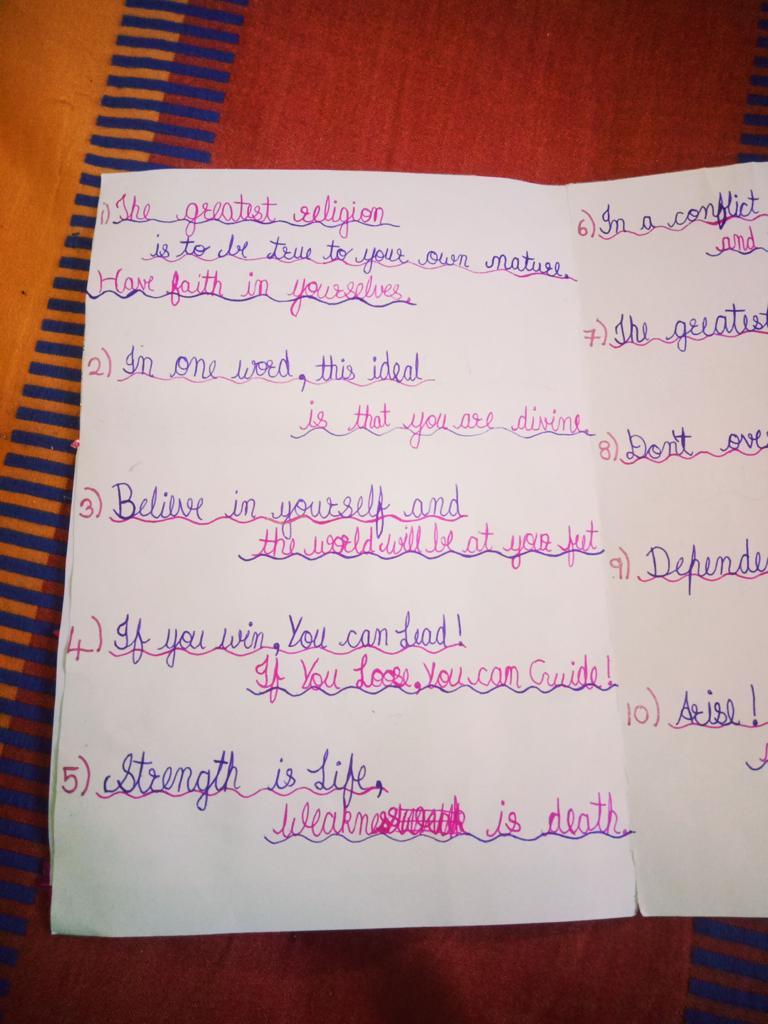 1) The greatest religion
is to be true to your own nature.
Have faith in yourselves.
2) In one word, this ideal
is that you are divine
3) Believe in yourself and
the world will be at your feet
4) If you win, You can Lead!
If You Loose, You can Guide!
5) Strength is Life,
Weakness is death.
6) In a conflict
and
7) The greatest
8) Don't
9)
10) Arise!